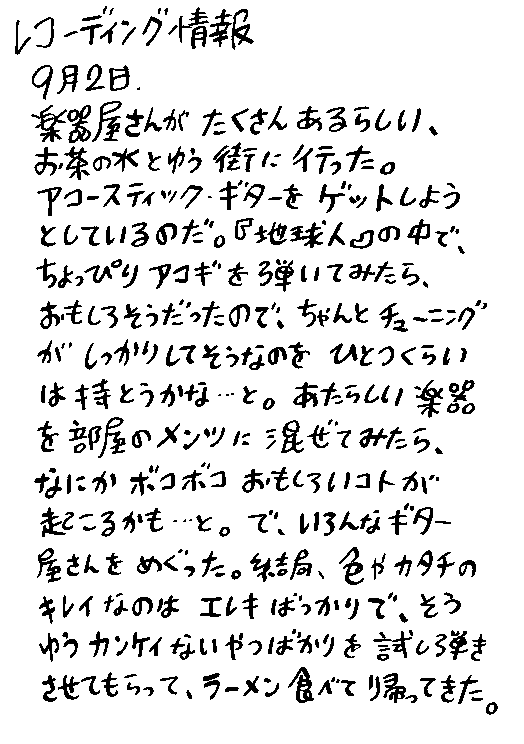 レコーディング情報
9月2日.
楽器屋さんが たくさん あるらしい、
お茶の水とゆう 街に行った。
アコースティック・ギターを ゲットしよう
としているのだ。『地球人』の中で、
ちょっぴり アコギを弾いてみたら、
おもしろそうだったので、ちゃんと チューニング
が しっかりしてそうなのを ひとつくらい
は持とうかな…と。あたらしい 楽器
を部屋のメンツに 混ぜてみたら、
なにか ボコボコ おもしろいコトが
起こるかも…と。で、いろんなギター
屋さんを めぐった。結局、色やカタチの
キレイなのは エレキ ばっかりで、そう
ゆう カンケイないやつばかりを 試し弾き
させてもらって、ラーメン 食べて 帰ってきた。